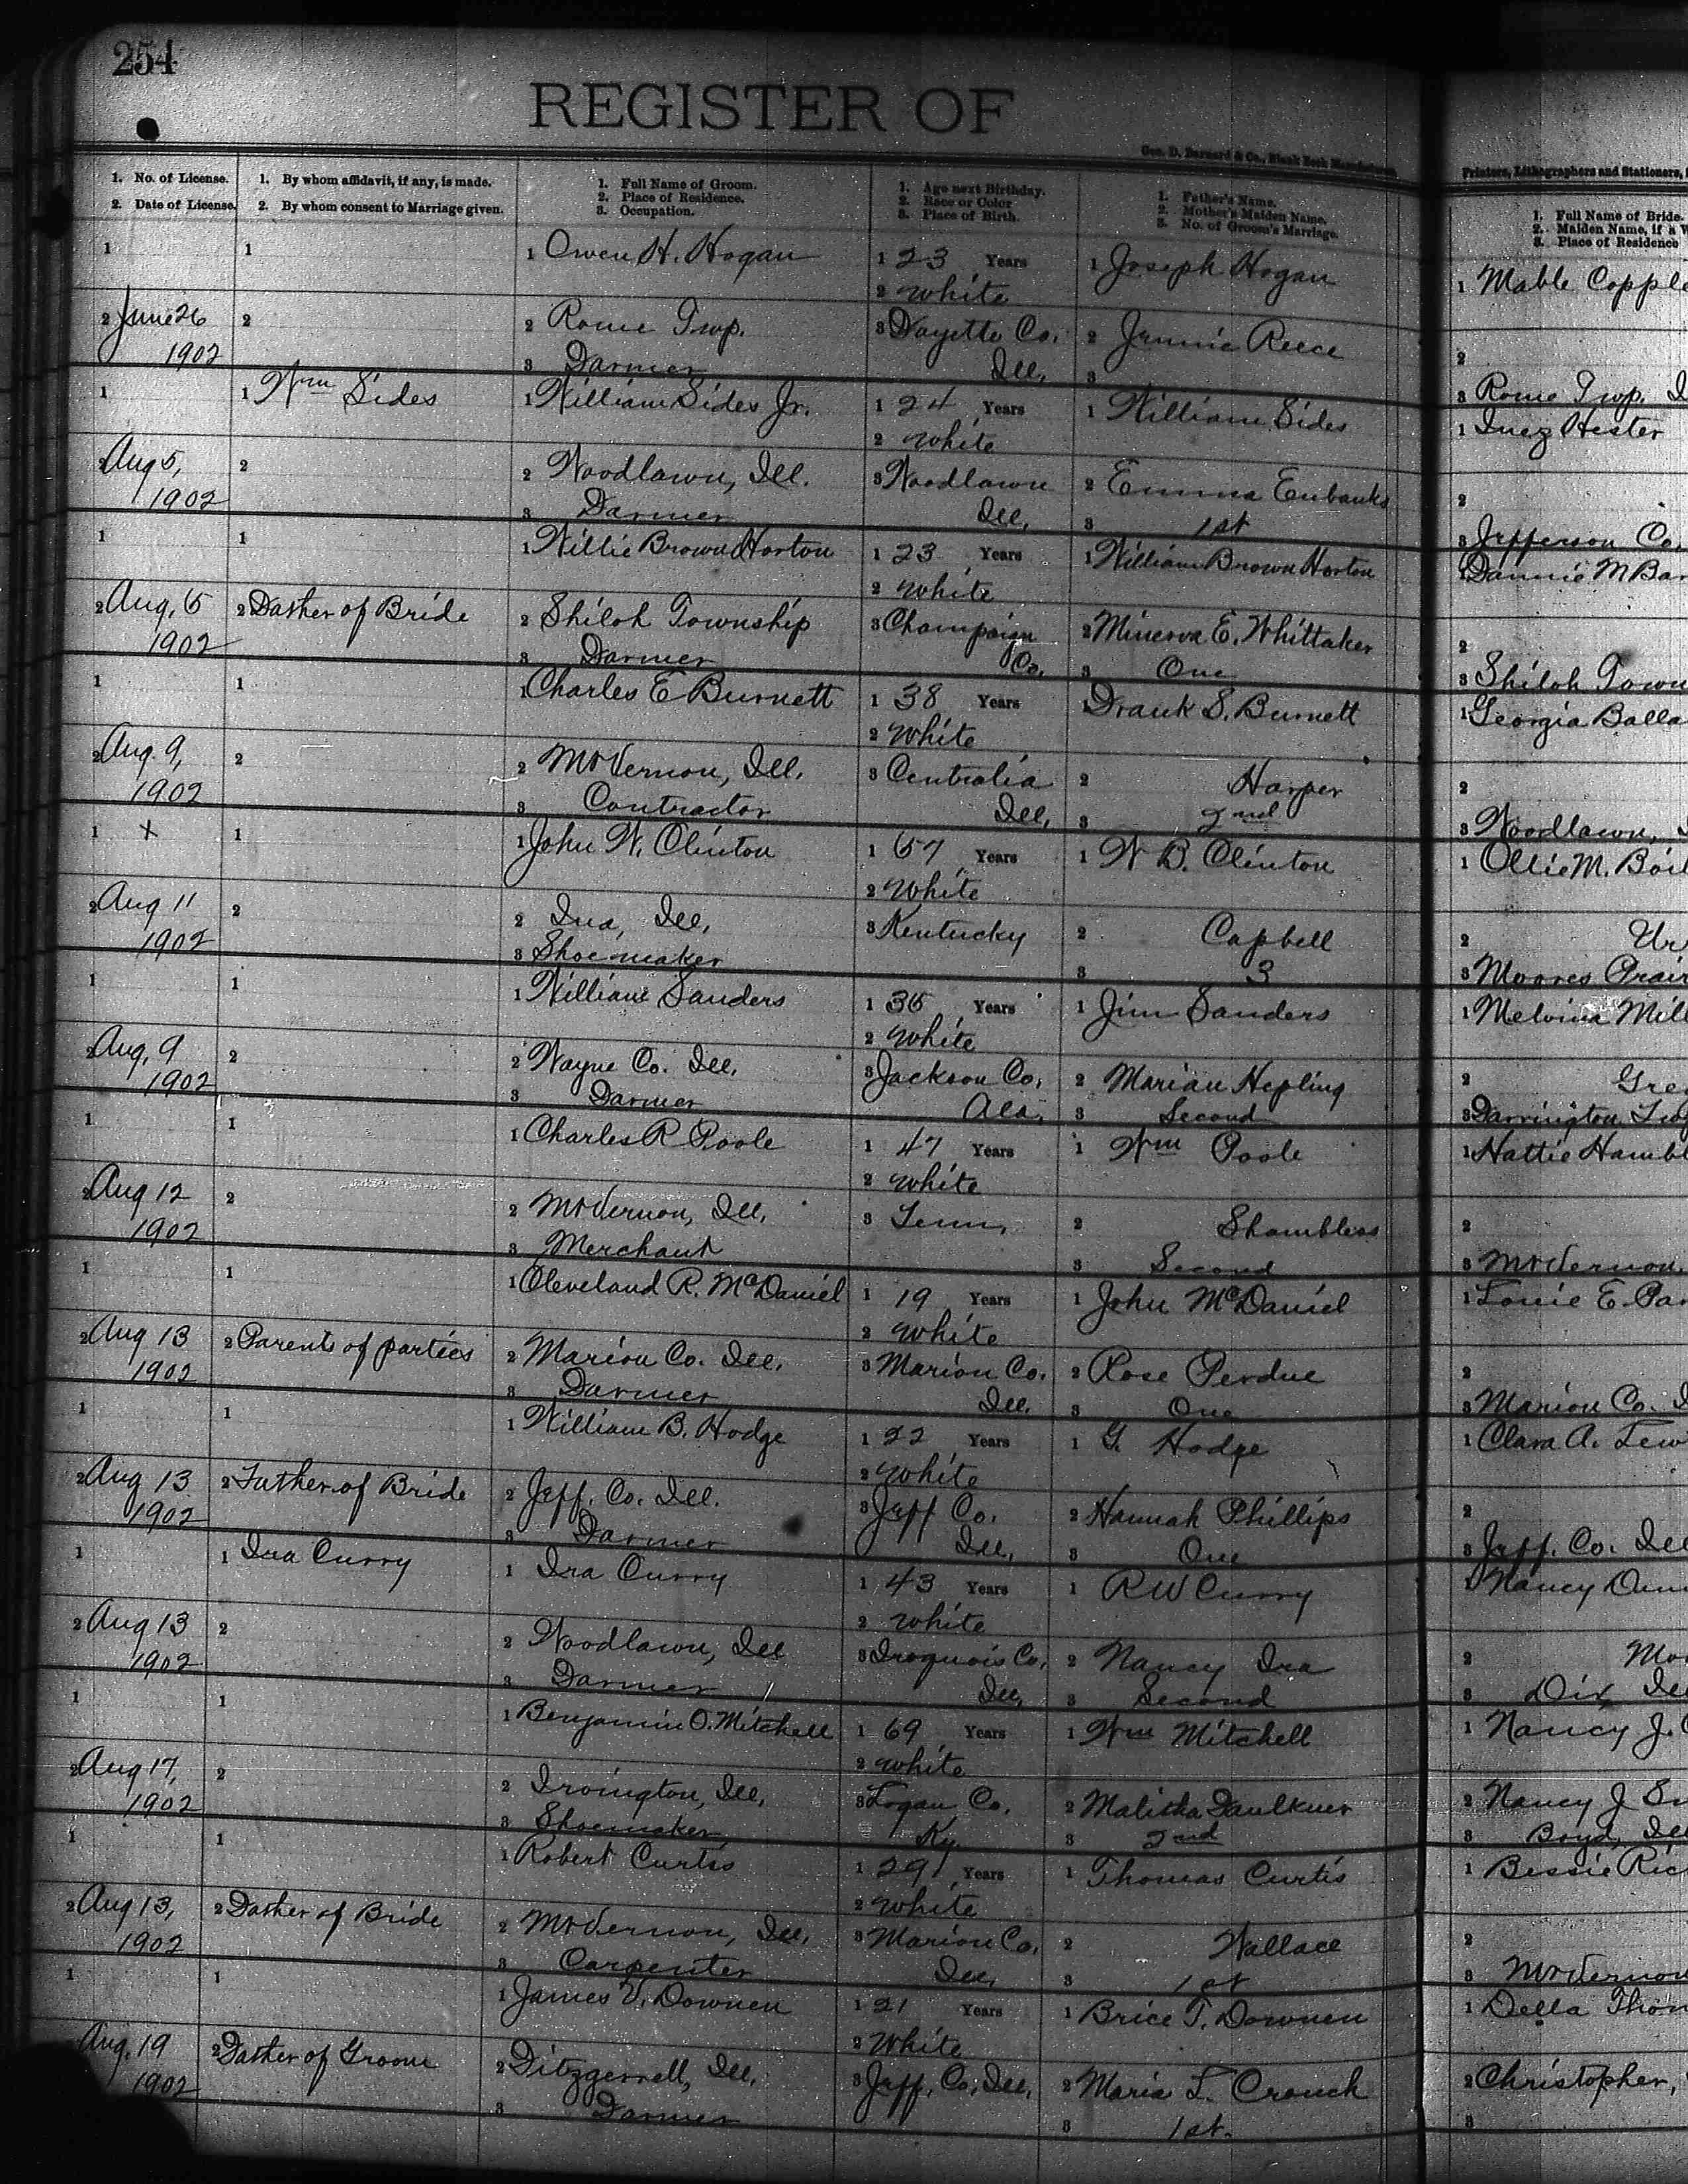 254
REGISTER OF
Geo. D. Barnard & Co., Blank Book Manufacturers,
Printers, Lithographers and Stationers,
1. No. of License.
2. Date of License.
1. By whom affidavit, if any, is made.
2. By whom consent to Marriage given.
1. Full Name of Groom.
2. Place of Residence.
3. Occupation.
1. Age next Birthday.
2. Race or Color
3. Place of Birth.
1. Father's Name.
2. Mother's Maiden Name.
3. No. of Groom's Marriage.
1. Full Name of Bride.
2. Maiden Name, if a W
3. Place of Residence
1 1 1 Owen H. Hogan 1 23 Years 1 Joseph Hogan 1 Mable Copple
2 White
2 June 26 2 2 Rome Twp. 3 Fayette Co. 2 Jennie Reece 2
1902 3 Farmer Ill. 3 3 Rome Twp. I
1 1 Wm Sides 1 William Sides Jr. 1 24 Years 1 William Sides 1 Inez Hester
2 White
2 Aug 5, 2 2 Woodlawn, Ill. 3 Woodlawn 2 Emma Eubanks 2
1902 3 Farmer Ill. 3 1st 3 Jefferson Co.
1 1 1 Willie Brown Horton 1 23 Years 1 William Brown Horton 1 Fannie M Bar
2 White
2 Aug. 6 2 Father of Bride 2 Shiloh Township 3 Champaign 2 Minerva E. Whittaker 2
1902 3 Farmer Co. 3 One 3 Shiloh Town
1 1 1 Charles E Burnett 1 38 Years 1 Frank S. Burnett 1 Georgia Balla
2 White
2 Aug. 9, 2 2 Mt Vernon, Ill. 3 Centralia 2 Harper 2
1902 3 Contractor Ill. 3 2nd 3 Woodlawn, I
1 x 1 1 John W. Clinton 1 57 Years 1 W B. Clinton 1 Ollie M. Boil
2 White
2 Aug 11 2 2 Ina, Ill. 3 Kentucky 2 Capbell 2 Ur
1902 3 Shoemaker 3 3 3 Moores Prair
1 1 1 William Sanders 1 35 Years 1 Jim Sanders 1 Melvina Mill
2 White
2 Aug. 9 2 2 Wayne Co. Ill. 3 Jackson Co. 2 Marian Hepling 2 Gre
1902 3 Farmer Ala. 3 Second 3 Farrington Twp
1 1 1 Charles R Poole 1 47 Years 1 Wm Poole 1 Hattie Hambl
2 White
2 Aug 12 2 2 Mt Vernon, Ill. 3 Tenn. 2 Shambless 2
1902 3 Merchant 3 Second 3 Mt Vernon.
1 1 1 Cleveland R. McDaniel 1 19 Years 1 John McDaniel 1 Louie E. Par
2 White
2 Aug 13 2 Parents of parties 2 Marion Co. Ill. 3 Marion Co. 2 Rose Perdue 2
1902 3 Farmer Ill. 3 One 3 Marion Co. I
1 1 1 William B. Hodge 1 22 Years 1 G. Hodge 1 Clara A. Lew
2 White
2 Aug 13 2 Father of Bride 2 Jeff. Co. Ill. 3 Jeff Co. 2 Hannah Phillips 2
1902 3 Farmer Ill. 3 One 3 Jeff. Co. Ill
1 1 Ira Curry 1 Ira Curry 1 43 Years 1 R W Curry 1 Nancy
2 White
2 Aug 13 2 2 Woodlawn, Ill 3 Iroquois Co. 2 Nancy Ira 2 Mo
1902 3 Farmer Ill. 3 Second 3 Dix, Ill
1 1 1 Benjamin O. Mitchell 1 69 Years 1 Wm Mitchell 1 Nancy J.
2 White
2 Aug 17, 2 2 Irvington, Ill. 3 Logan Co. 2 Malitha Faulkner 2 Nancy J
1902 3 Shoemaker, Ky. 3 2nd 3 Boyd, Ill
1 1 1 Robert Curtis 1 29 Years 1 Thomas Curtis 1 Bessie Ric
2 White
2 Aug 13, 2 Father of Bride 2 Mt Vernon, Ill. 3 Marion Co. 2 Wallace 2
1902 3 Carpenter Ill. 3 1st 3 Mt Vernon
1 1 1 James V. Downen 1 21 Years 1 Brice T. Downen 1 Della Thom
2 White
Aug. 19 2 Father of Groom 2 Fitzgerrell, Ill. 3 Jeff. Co. Ill. 2 Maria L. Crouch 2 Christopher,
1902 3 Farmer 3 1st. 3